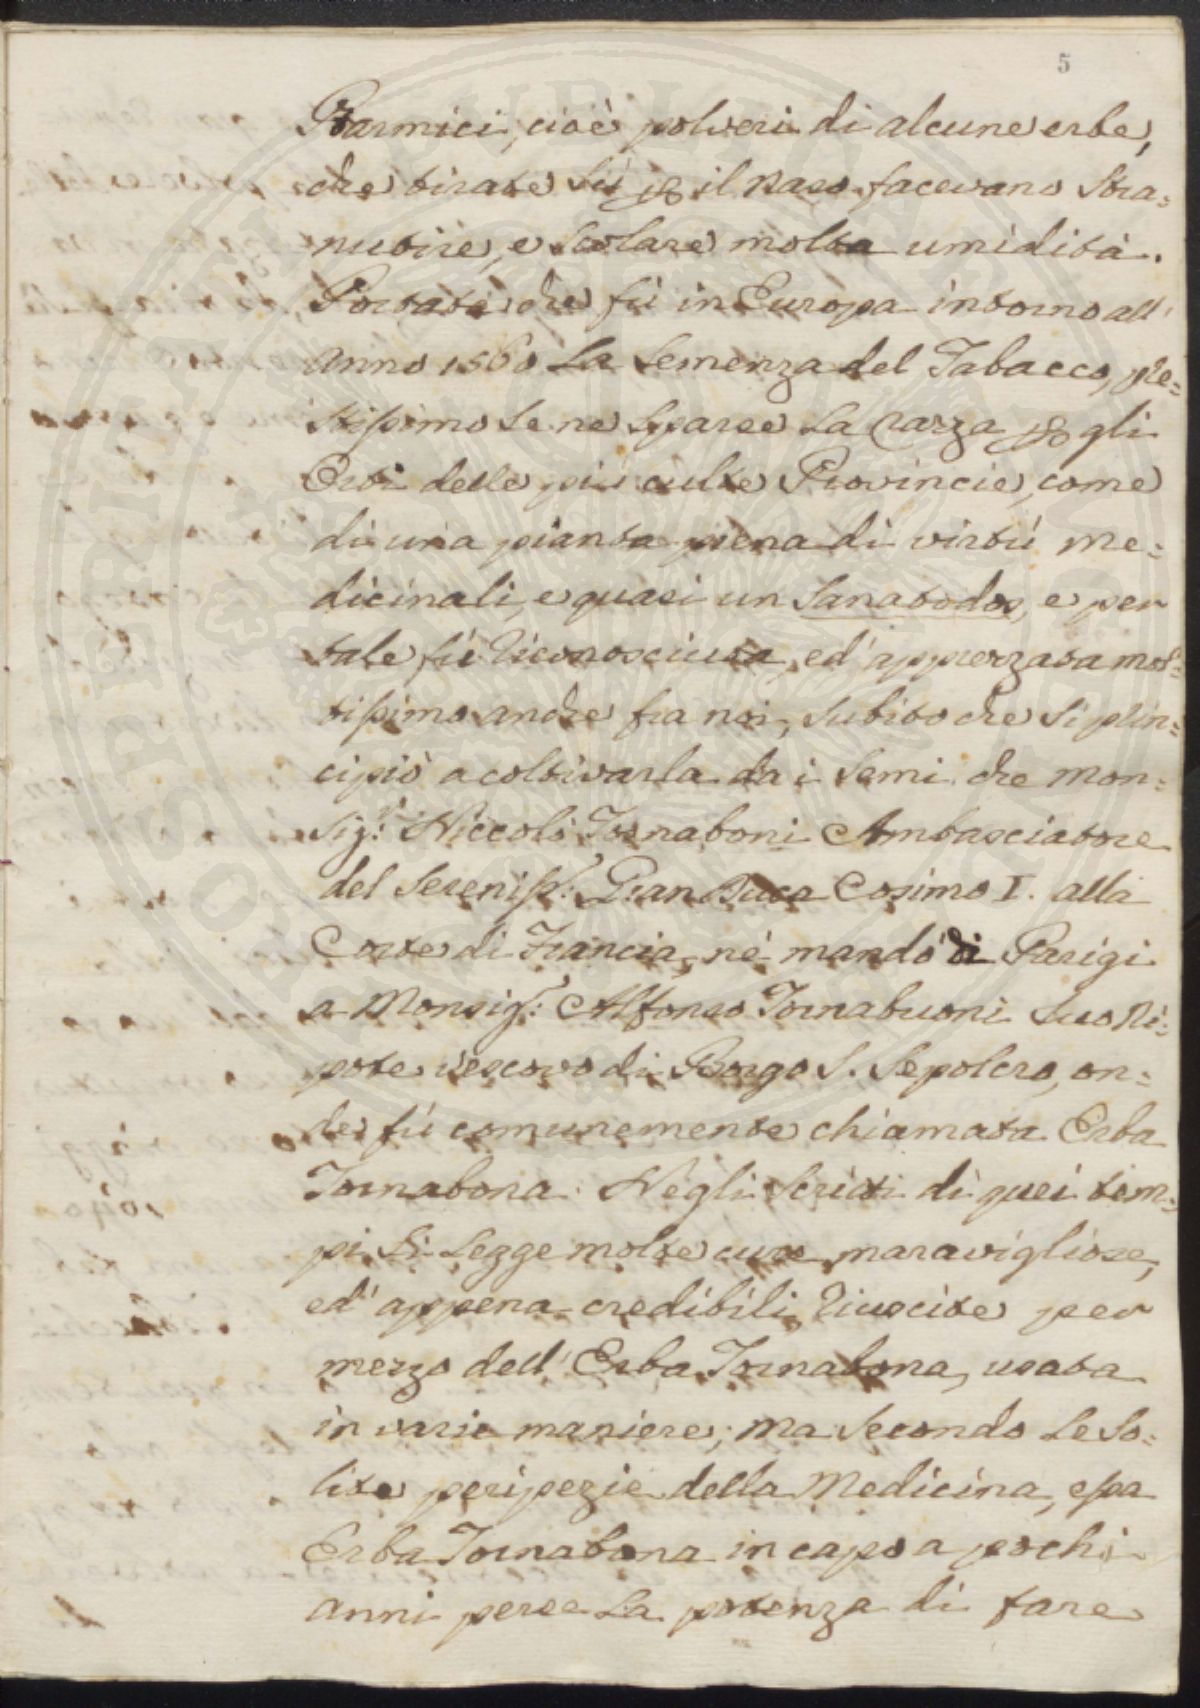 5
Starmici, cioè polveri di alcune erbe,
che tirate sù per il Naso facevano Stra=
nutire, e Scolare molta umidità.
Portata che fù in Europa intorno all'
Anno 1560 La Semenza del Tabacco, pre=
stissimo Se ne Sparse La razza per gli
Orti delle più culte Provincie, come
di una pianta piena di virtù Me=
dicinali, e quasi un Sanatodos, e per
tale fù riconosciuta, ed' apprezzata mol=
tissimo anche fra noi, Subito che Si prin=
cipiò a coltivarla da i Semi che Mon=
Sig.r Niccolò Tornaboni Ambasciatore
del Sereniss.: Gran Duca Cosimo I. alla
Corte di Francia, nè mandò di Parigi
a Monsig.r: Alfonso Tornabuoni Suo Ni=
pote Vescovo di Borgo S. Sepolcro, on=
de fù comunemente chiamata Erba
Tornabona. Negli Scritti di quei tem=
pi Si Legge molte cure maravigliose,
ed' appena credibili riuscite per
mezzo dell' Erba Tornabona, usata
in varie maniere; Ma Secondo Le So=
lite peripezie della Medicina, essa
Erba Tornabona in capo a pochi
Anni perse La potenza di fare